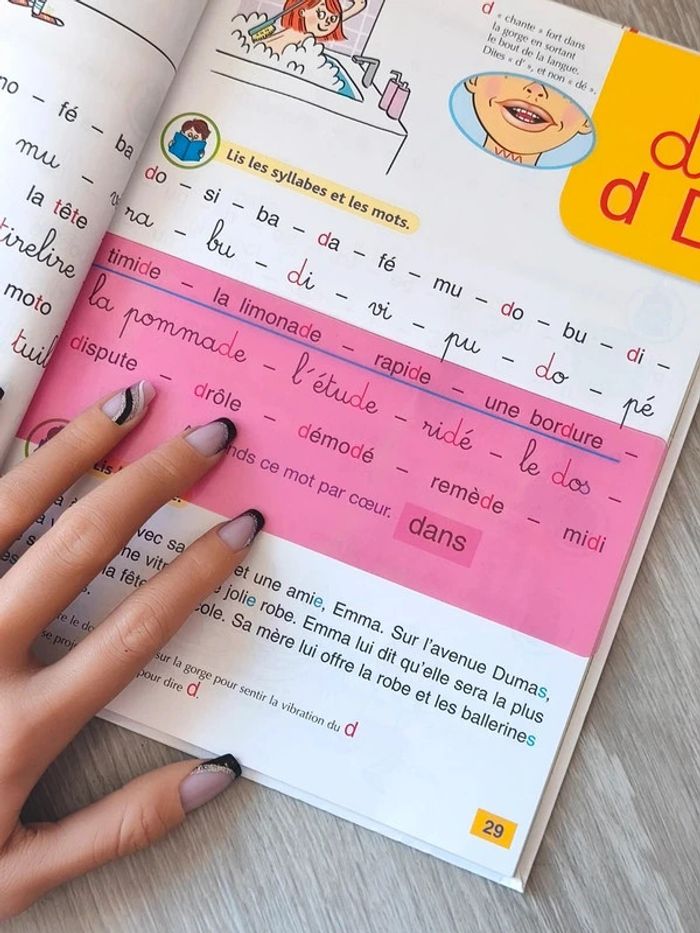 no – fé – ba
mu –
la tête
tirelire
moto
tuil
d « chante » fort dans
la gorge en sortant
le bout de la langue.
Dites « d' », et non « dé ».
d
d D
Lis les syllabes et les mots.
do – si – ba – da – fé – mu – do – bu – di –
ra – bu – di – vi – pu – do – pé
timide – la limonade – rapide – une bordure –
la pommade – l'étude – ridé – le dos –
dispute – drôle – démodé – remède – midi
ce mot par cœur. dans
Lis
avec sa et une amie, Emma. Sur l'avenue Dumas,
une vitr jolie robe. Emma lui dit qu'elle sera la plus
la fête cole. Sa mère lui offre la robe et les ballerines
sur la gorge pour sentir la vibration du d
pour dire d.
29